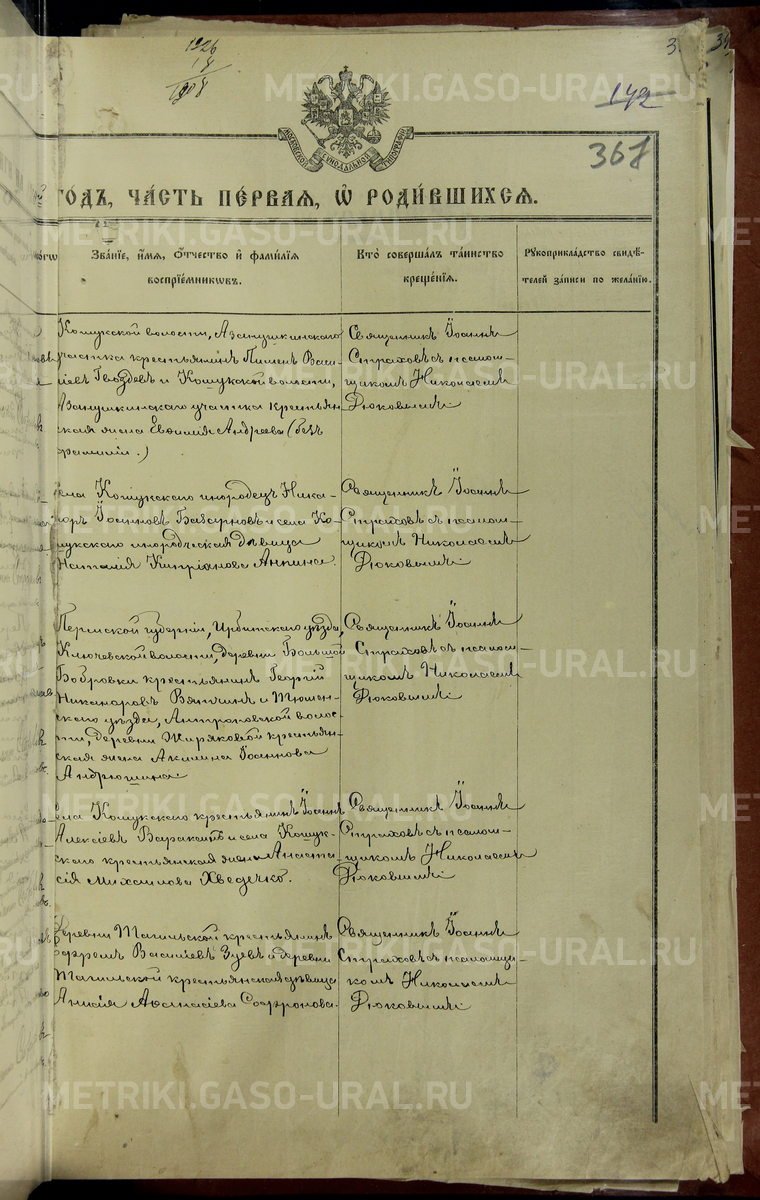 1926
18
1908
3
39
142
367
МОСКОВСКОЙ СѴНОДАЛЬНОЙ ТИПОГРАФІИ
ГОДЪ, ЧАСТЬ ПЕРВАЯ, Ѡ РОДИВШИХСЯ.
Званіе, имя, отчество и фамилія воспріемниковъ.
Кто совершалъ таинство крещенія.
Рукоприкладство свидѣтелей записи по желанію.
Кошукской волости, Азанушкинскаго
участка крестьянинъ Пимен Васи-
ліевъ Гвоздевъ и Кошукской волости,
Азанушкинскаго участка крестьян
ская жена Евѳимія Андреева (безъ
фамиліи.)
Священникъ Іоаннъ
Страховъ съ псалом-
щикомъ Николаемъ
Рюковымъ
села Кошукскаго инородецъ Ника-
норъ Іоанновъ и села Ко-
шукскаго инородческая дѣвица
Наталія Кипріанова Анкина.
Священникъ Іоаннъ
Страховъ съ псалом-
щикомъ Николаемъ
Рюковымъ
Пермской губерніи, Ирбитскаго уѣзда,
Ключевской волости, деревни Большой
Бобровки крестьянинъ Георгій
Никаноровъ Вяткинъ и Тюмен-
скаго уѣзда, Антроповской волос-
ти, деревни Жиряковой крестьян-
ская жена Акилина Іоаннова
Андрюшина.
Священникъ Іоаннъ
Страховъ съ псалом-
щикомъ Николаемъ
Рюковымъ
села Кошукскаго крестьянинъ Іоаннъ
Алексіевъ и села Кошук-
скаго крестьянская жена Анаста-
сія Михаилова Хведечко.
Священникъ Іоаннъ
Страховъ съ псалом-
щикомъ Николаемъ
Рюковымъ
Деревни Тагильской крестьянинъ
Ефремъ Василіевъ Зуевъ и деревни
Тагильской крестьянская дѣвица
Анисія Аѳанасіева Софронова.
Священникъ Іоаннъ
Страховъ съ псаломщи-
комъ Николаемъ
Рюковымъ
METRIKI.GASO-URAL.RU